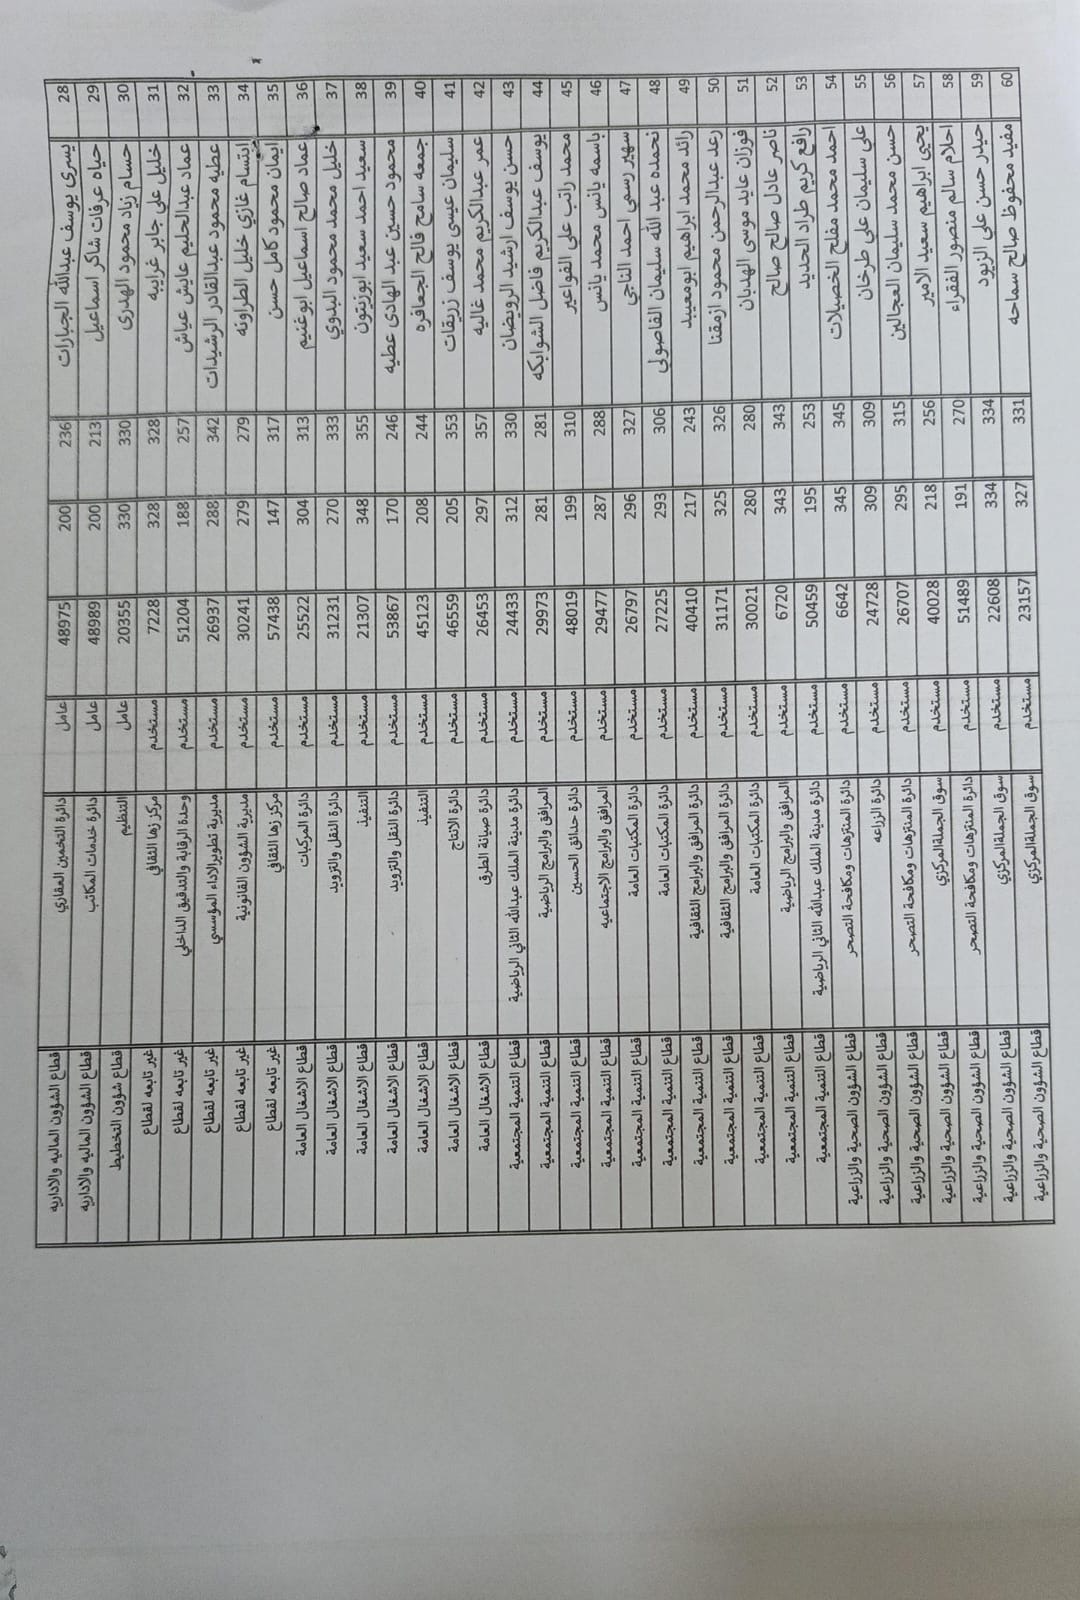 28 يسرى يوسف عبدالله الجبارات 236 200 48975 عامل دائرة التخمين العقاري قطاع الشؤون الماليه والاداريه
29 حياه عرفات شاكر اسماعيل 213 200 48989 عامل دائرة خدمات المكاتب قطاع الشؤون الماليه والاداريه
30 حسام زياد محمود الهدرى 330 330 20355 عامل التنظيم قطاع شؤون التخطيط
31 خليل علي جابر غرايبه 328 328 7228 مستخدم مركز زها الثقافي غير تابعه لقطاع
32 عماد عبدالحليم عايش عياش 257 188 51204 مستخدم وحدة الرقابة والتدقيق الداخلي غير تابعه لقطاع
33 عطيه محمود عبدالقادر الرشيدات 342 288 26937 مستخدم مديرية تطويرالاداء المؤسسي غير تابعه لقطاع
34 ابتسام غازي خليل الطراونه 279 279 30241 مستخدم مديرية الشؤون القانونية غير تابعه لقطاع
35 ايمان محمود كامل حسن 317 147 57438 مستخدم مركز زها الثقافي غير تابعه لقطاع
36 عماد صالح اسماعيل ابوغنيم 313 304 25522 مستخدم دائرة المركبات قطاع الاشغال العامة
37 خليل محمد محمود البدوي 333 270 31231 مستخدم دائرة النقل والتزويد قطاع الاشغال العامة
38 سعيد احمد سعيد ابوزيتون 355 348 21307 مستخدم التنفيذ قطاع الاشغال العامة
39 محمود حسين عبد الهادى عطيه 246 170 53867 مستخدم دائرة النقل والتزويد قطاع الاشغال العامة
40 جمعه سامح فالح الجعافره 244 208 45123 مستخدم التنفيذ قطاع الاشغال العامة
41 سليمان عيسى يوسف زريقات 353 205 46559 مستخدم دائرة الانتاج قطاع الاشغال العامة
42 عمر عبدالكريم محمد غاليه 357 297 26453 مستخدم دائرة صيانة الطرق قطاع الاشغال العامة
43 حسن يوسف ارشيد الرويضان 330 312 24433 مستخدم دائرة مدينة الملك عبدالله الثاني الرياضية قطاع التنمية المجتمعية
44 يوسف عبدالكريم فاضل الشوابكه 281 281 29973 مستخدم المرافق والبرامج الرياضية قطاع التنمية المجتمعية
45 محمد راتب علي الفواعير 310 199 48019 مستخدم دائرة حدائق الحسين قطاع التنمية المجتمعية
46 باسمه يانس محمد يانس 288 287 29477 مستخدم المرافق والبرامج الاجتماعيه قطاع التنمية المجتمعية
47 سهير رسمي احمد الناجي 327 296 26797 مستخدم دائرة المكتبات العامة قطاع التنمية المجتمعية
48 نحمده عبد الله سليمان الفاصولى 306 293 27225 مستخدم دائرة المكتبات العامة قطاع التنمية المجتمعية
49 رائد محمد ابراهيم ابومعيبد 243 217 40410 مستخدم دائرة المرافق والبرامج الثقافية قطاع التنمية المجتمعية
50 رعد عبدالرحمن محمود ازمقنا 326 325 31171 مستخدم دائرة المرافق والبرامج الثقافية قطاع التنمية المجتمعية
51 فوزان عايد موسى الهديان 280 280 30021 مستخدم دائرة المكتبات العامة قطاع التنمية المجتمعية
52 ناصر عادل صالح صالح 343 343 6720 مستخدم المرافق والبرامج الرياضية قطاع التنمية المجتمعية
53 رافع كريم طراد الحديد 253 195 50459 مستخدم دائرة مدينة الملك عبدالله الثاني الرياضية قطاع التنمية المجتمعية
54 احمد محمد مفلح الخصيلات 345 345 6642 مستخدم دائرة المتنزهات ومكافحة التصحر قطاع الشؤون الصحية والزراعية
55 علي سليمان علي طرخان 309 309 24728 مستخدم دائرة الزراعه قطاع الشؤون الصحية والزراعية
56 حسن محمد سليمان العجالين 315 295 26707 مستخدم دائرة المتنزهات ومكافحة التصحر قطاع الشؤون الصحية والزراعية
57 يحيى ابراهيم سعيد الامير 256 218 40028 مستخدم سوق الجملةالمركزي قطاع الشؤون الصحية والزراعية
58 احلام سالم منصور الفقراء 270 191 51489 مستخدم دائرة المتنزهات ومكافحة التصحر قطاع الشؤون الصحية والزراعية
59 حيدر حسن علي الزيود 334 334 22608 مستخدم سوق الجملةالمركزي قطاع الشؤون الصحية والزراعية
60 مفيد محفوظ صالح سماحه 331 327 23157 مستخدم سوق الجملةالمركزي قطاع الشؤون الصحية والزراعية